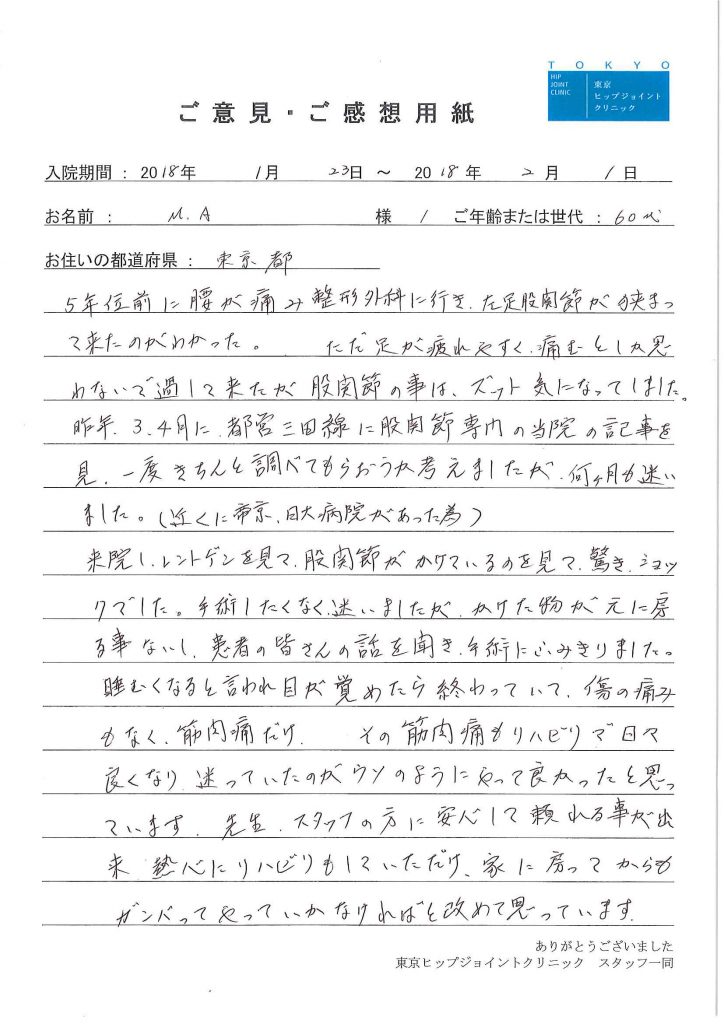 TOKYO
HIP
JOINT
CLINIC
東京
ヒップジョイント
クリニック
ご意見・ご感想用紙
入院期間 : 2018年 1月 23日 ～ 2018年 2月 1日
お名前 : M.A 様 / ご年齢または世代 : 60代
お住いの都道府県 : 東京都
5年位前に腰が痛み整形外科に行き、左足股関節が狭まっ
て来たのがわかった。 ただ足が疲れやすく、痛むとしか思
わないで過して来たが股関節の事は、ズット気になってしました。
昨年、3、4月に、都営三田線に股関節専門の当院の記事を
見、一度きちんと調べてもらおうか考えましたが、何ヶ月も迷い
ました。(近くに帝京、日大病院があった為)
来院し、レントゲンを見て、股関節がかけているのを見て、驚き、ショッ
クでした。手術したくなく、迷いましたが、かけた物が元に戻
る事ないし、患者の皆さんの話を聞き、手術にふみきりました。
睡むくなると言われ目が覚めたら終わっていて、傷の痛み
もなく、筋肉痛だけ、 その筋肉痛もリハビリで日々
良くなり、迷っていたのがウソのようにやって良かったと思っ
ています、先生、スタッフの方に安心して頼れる事が出
来 熱心にリハビリもしていただけ、家に戻ってからも
ガンバってやっていかなければと改めて思っています。
ありがとうございました
東京ヒップジョイントクリニック スタッフ一同